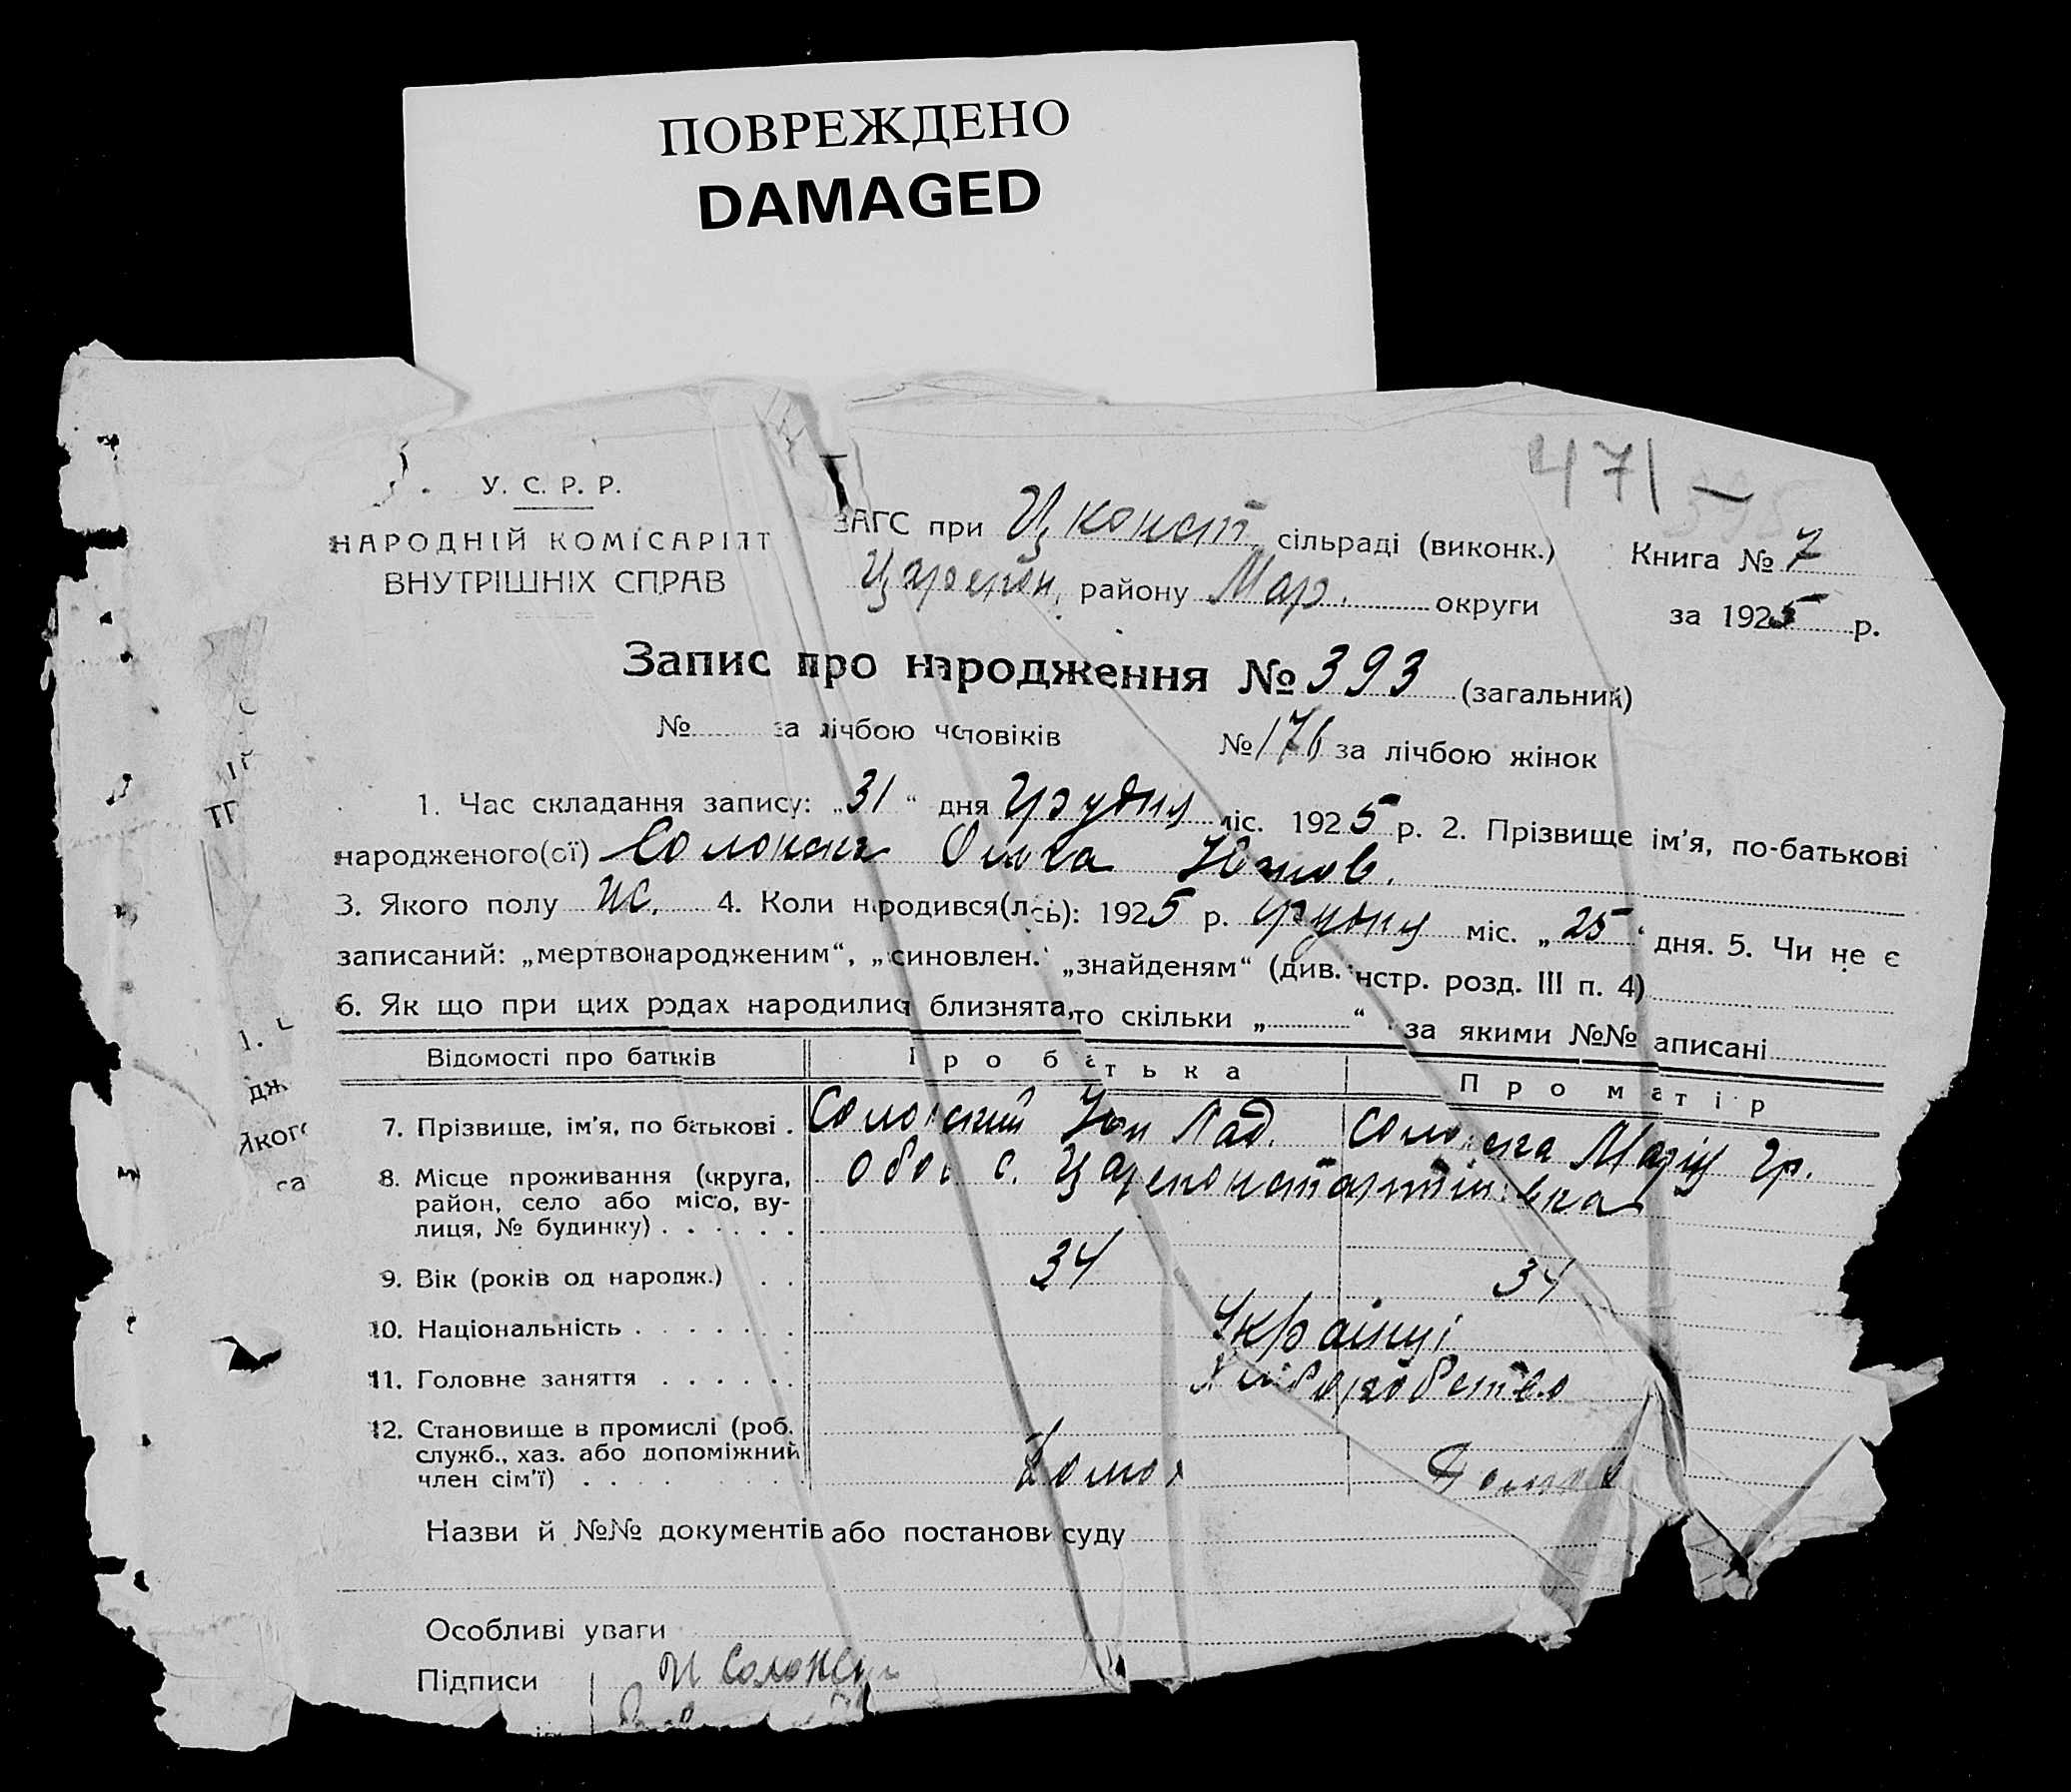 ПОВРЕЖДЕНО
DAMAGED
471 —
У. С. Р. Р.
НАРОДНІЙ КОМІСАРІЯТ
ВНУТРІШНІХ СПРАВ
ЗАГС при Ц конст. сільраді (виконк.)
Царекон. району Мар. округи
Книга № 7
за 1925 р.
Запис про народження № 393 (загальний)
№ за лічбою чоловіків № 176 за лічбою жінок
1. Час складання запису: „31“ дня Грудня міс. 1925 р. 2. Прізвище ім'я, по-батькові
народженого(ої) Ольга
3. Якого полу ж. 4. Коли народився(лась): 1925 р. Грудня міс. „25“ дня. 5. Чи не є
записаний: „мертвонародженим“, „синовлен.“ „знайденям“ (див. інстр. розд. III п. 4)
6. Як що при цих родах народилися близнята, то скільки „ “ за якими №№ аписані
Відомості про батьків Про батька Про матір
7. Прізвище, ім'я, по батькові . Марія Гр.
8. Місце проживання (округа, с. Цареконстантинівка
район, село або місто, ву-
лиця, № будинку) . . . . . .
9. Вік (років од народж.) . . 34 34
10. Національність . . . . . . . Українці
11. Головне заняття . . . . . . Хліборобство
12. Становище в промислі (роб.
служб., хаз. або допоміжний
член сім'ї) . . . . . . .
Назви й №№ документів або постанови суду
Особливі уваги
Підписи
1. Ч
дж
Якого
са